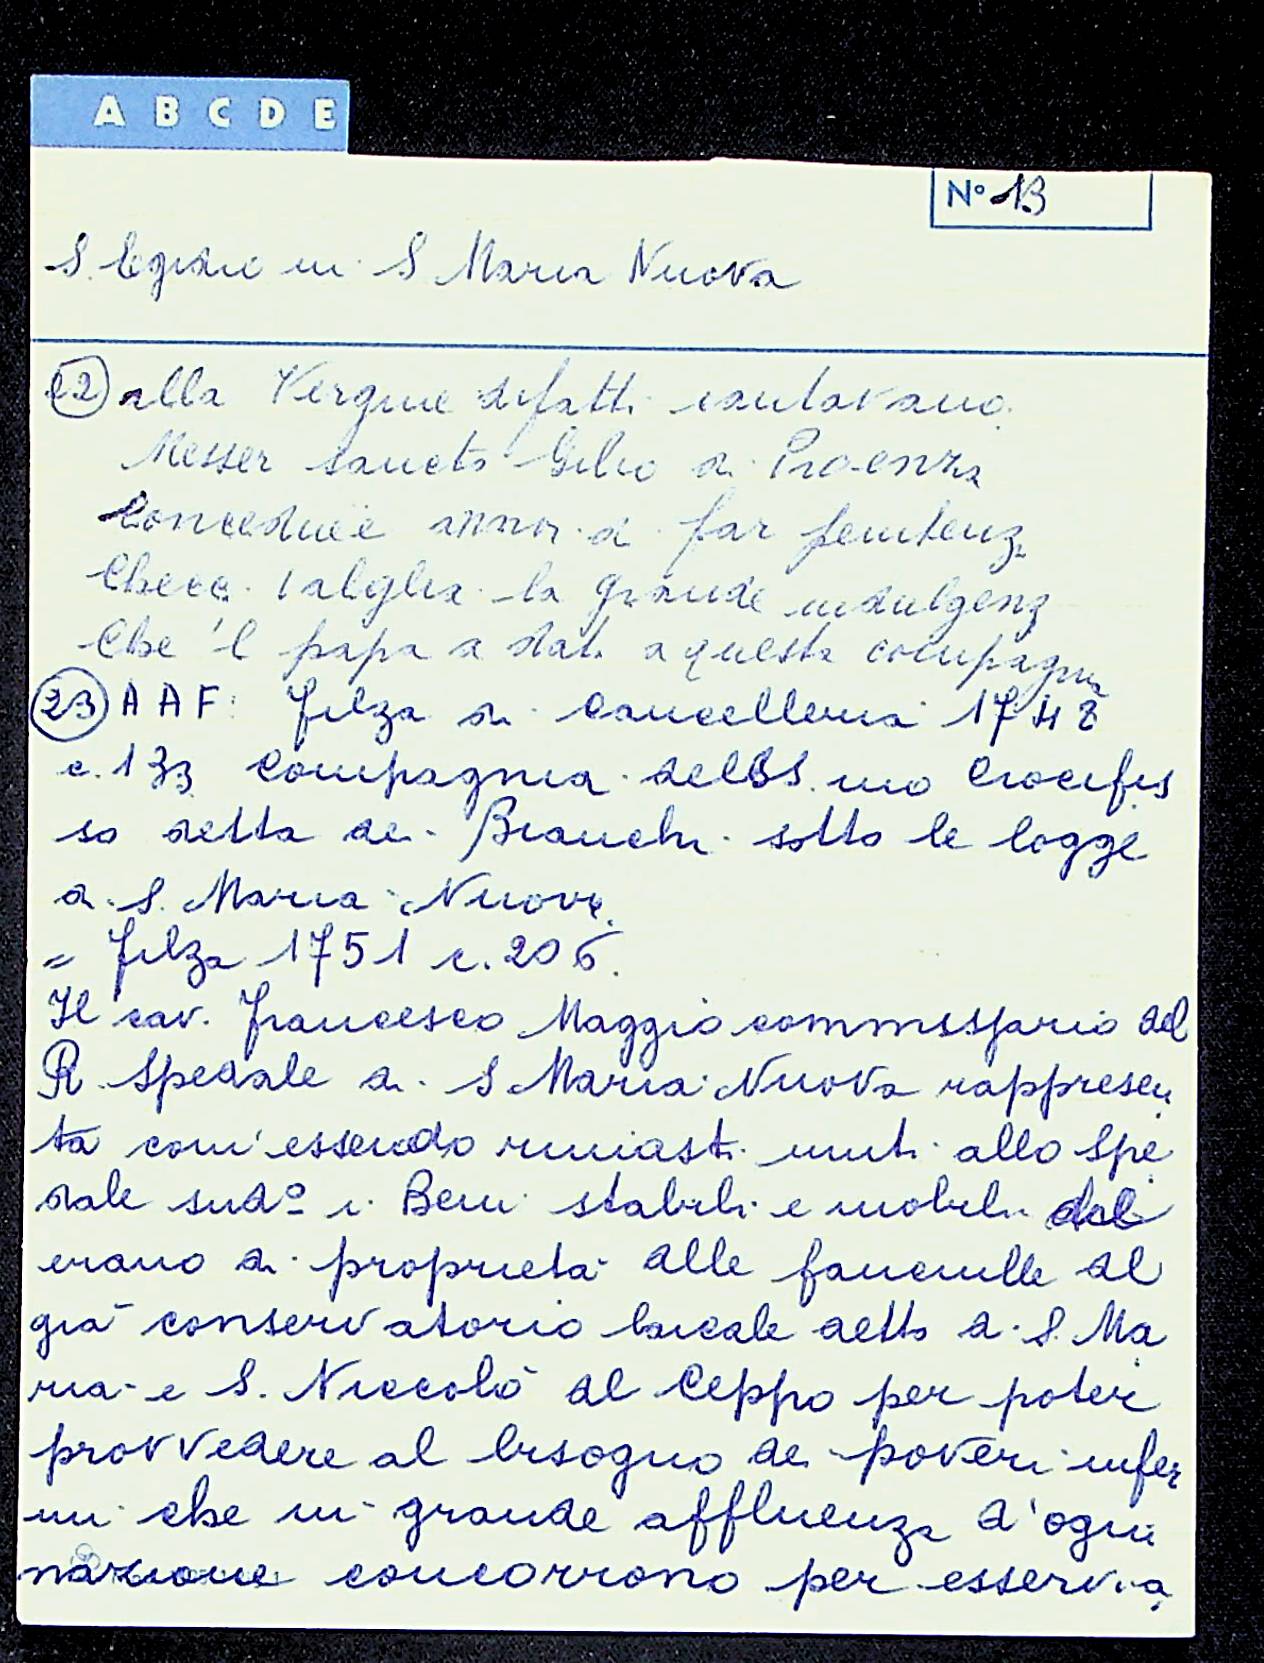 A B C D E
N° 13
S. Egidio in S Maria Nuova
22 alla Vergine difatti cantavano.
Messer sancto Gilio di Proenza
Conceducie annoi di far penitenz
Checci valglia la grande indulgenz
Che 'l papa a dato a questa compagni
23 A A F: filza di cancelleria 1748
c. 133 Compagnia dellSS.mo Crocifis
so detta de Bianchi sotto le logge
di S. Maria Nuova.
= filza 1751 c. 206.
Il cav. Francesco Maggio commissario del
R. Spedale di S Maria Nuova rappresen
ta com'essendo rimasti uniti allo Spe
dale sud° i Beni stabili e mobili del
erano di proprietà alle fanciulle del
già conservatorio laicale detto di S. Ma
ria e S. Niccolò del Ceppo per poter
provvedere al bisogno de poveri infer
mi che in grande affluenza d'ogni
nazione concorrono per esservi a